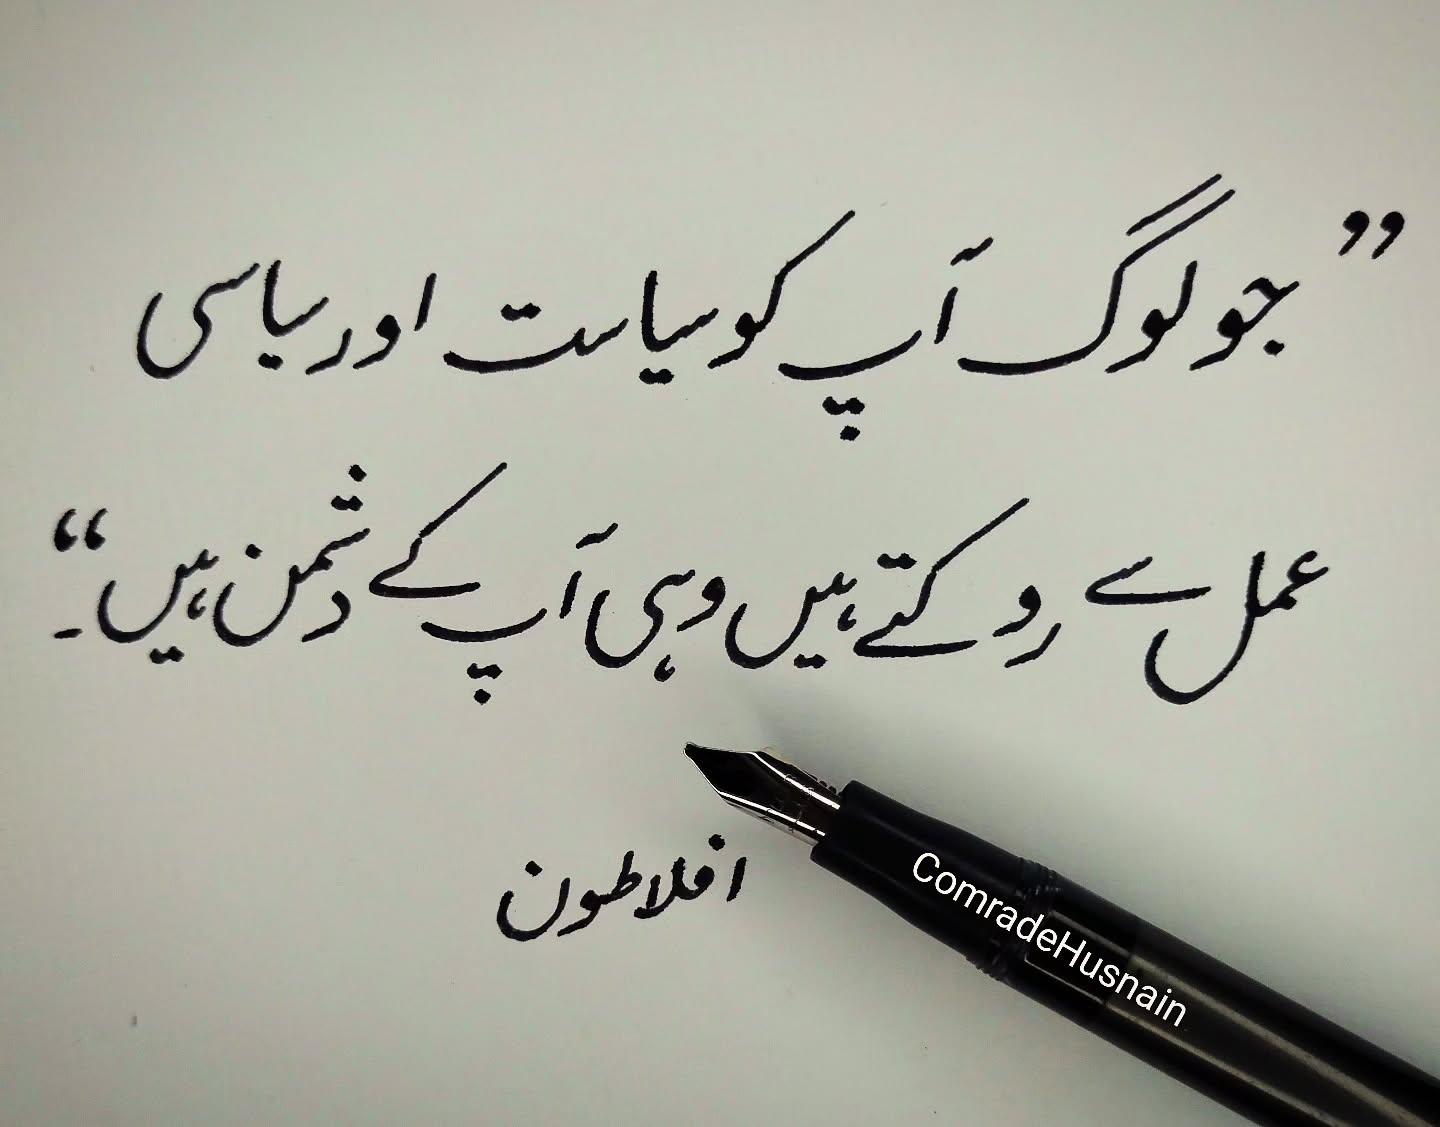 ”جو لوگ آپ کو سیاست اور سیاسی
عمل سے روکتے ہیں وہی آپ کے دشمن ہیں“۔
افلاطون
ComradeHusnain